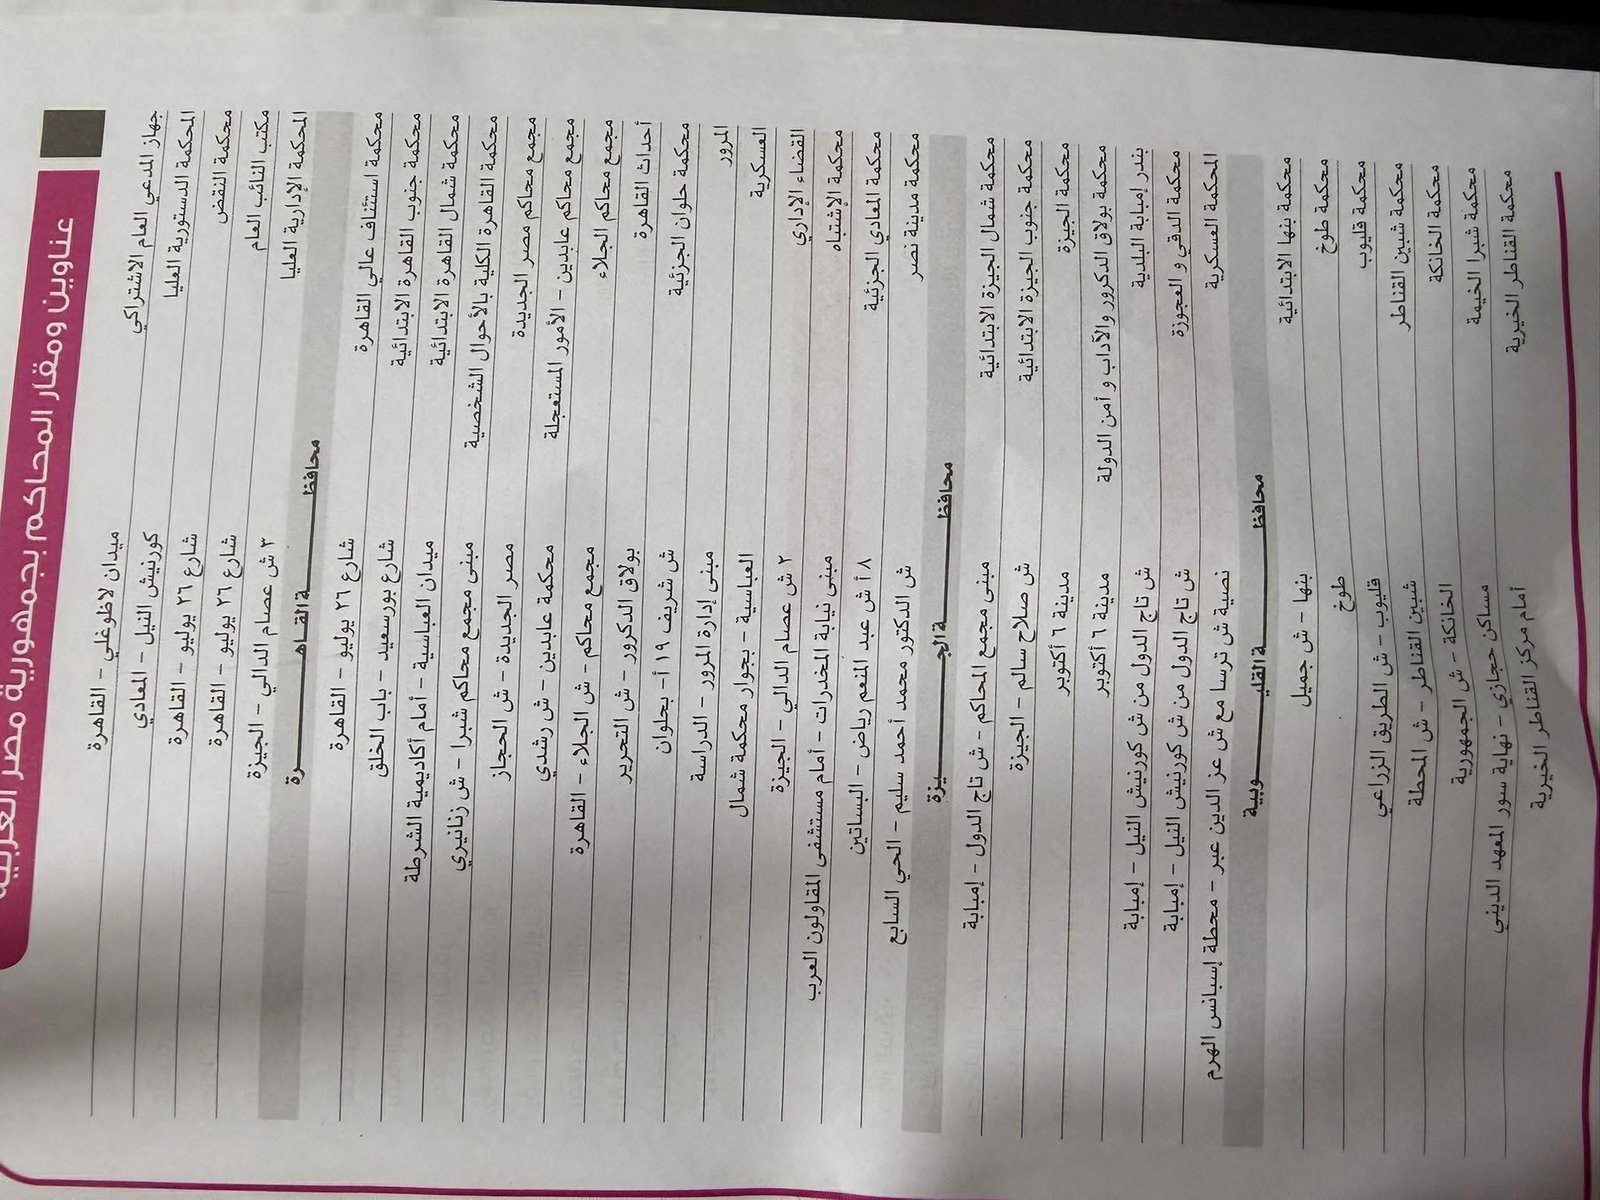 عناوين ومقار المحاكم بجمهورية مصر العربية
جهاز المدعي العام الاشتراكي ميدان لاظوغلي - القاهرة
المحكمة الدستورية العليا كورنيش النيل - المعادي
محكمة النقض شارع ٢٦ يوليو - القاهرة
مكتب النائب العام شارع ٢٦ يوليو - القاهرة
المحكمة الإدارية العليا ٣ ش عصام الدالي - الجيزة
محافظة القاهرة
محكمة استئناف عالي القاهرة شارع ٢٦ يوليو - القاهرة
محكمة جنوب القاهرة الابتدائية شارع بورسعيد - باب الخلق
محكمة شمال القاهرة الابتدائية ميدان العباسية - أمام أكاديمية الشرطة
محكمة القاهرة الكلية بالأحوال الشخصية مبنى مجمع محاكم شبرا - ش زنانيري
مجمع محاكم مصر الجديدة مصر الجديدة - ش الحجاز
مجمع محاكم عابدين - الأمور المستعجلة محكمة عابدين - ش رشدي
مجمع محاكم الجلاء مجمع محاكم - ش الجلاء - القاهرة
أحداث القاهرة بولاق الدكرور - ش التحرير
محكمة حلوان الجزئية ش شريف ١٩ أ- بحلوان
المرور مبنى إدارة المرور - الدراسة
العسكرية العباسية - بجوار محكمة شمال
القضاء الإداري ٢ ش عصام الدالي - الجيزة
محكمة الإشتباه مبنى نيابة المخدرات - أمام مستشفى المقاولون العرب
محكمة المعادي الجزئية ٨ أ ش عبد المنعم رياض - البساتين
محكمة مدينة نصر ش الدكتور محمد أحمد سليم - الحي السابع
محافظة الجيزة
محكمة شمال الجيزة الابتدائية مبنى مجمع المحاكم - ش تاج الدول - إمبابة
محكمة جنوب الجيزة الابتدائية ش صلاح سالم - الجيزة
محكمة الجيزة مدينة ٦ أكتوبر
محكمة بولاق الدكرور والآداب و أمن الدولة مدينة ٦ أكتوبر
بندر إمبابة البلدية ش تاج الدول من ش كورنيش النيل - إمبابة
محكمة الدقي و العجوزة ش تاج الدول من ش كورنيش النيل - إمبابة
المحكمة العسكرية نصية ش ترسا مع ش عز الدين عبر - محطة إسباتس الهرم
محافظة القليوبية
محكمة بنها الابتدائية بنها - ش جميل
محكمة طوخ طوخ
محكمة قليوب قليوب - ش الطريق الزراعي
محكمة شبين القناطر شبين القناطر - ش المحطة
محكمة الخانكة الخانكة - ش الجمهورية
محكمة شبرا الخيمة مساكن حجازي - نهاية سور المعهد الديني
محكمة القناطر الخيرية أمام مركز القناطر الخيرية